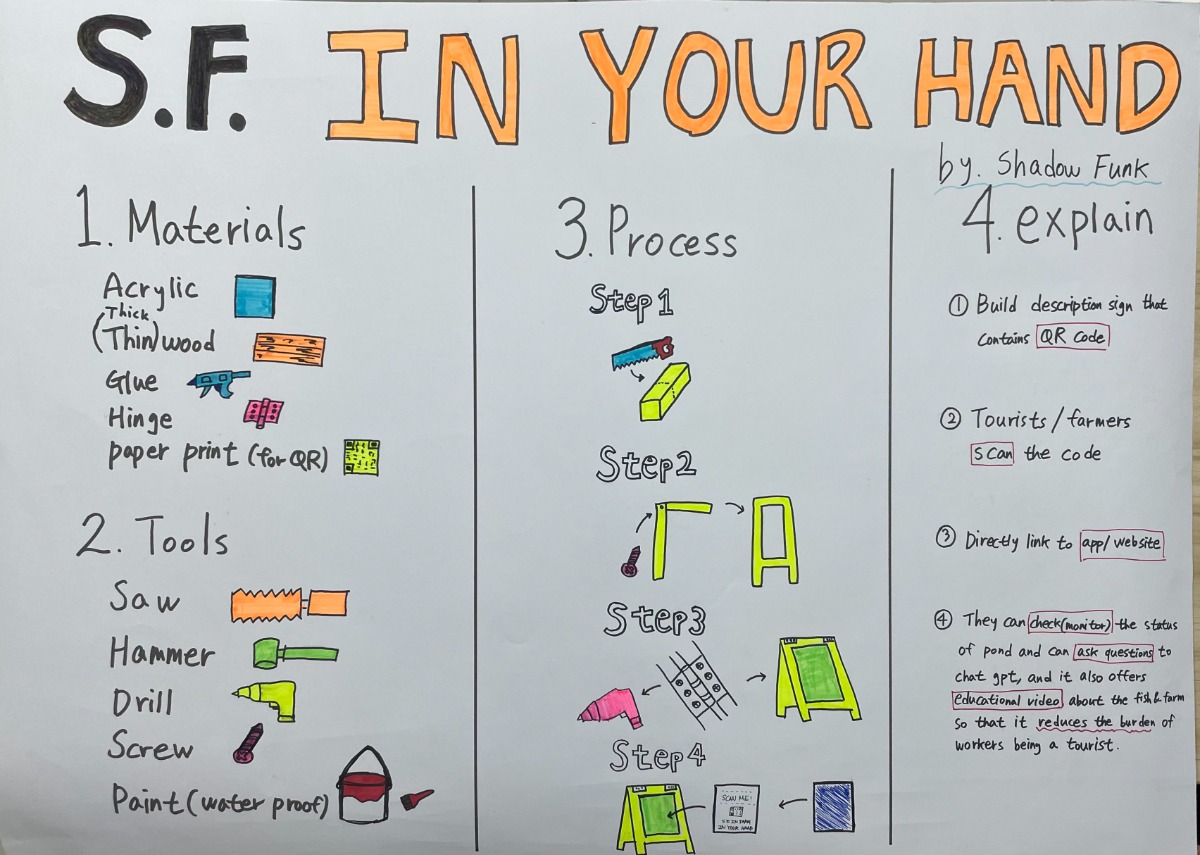 S.F. IN YOUR HAND
by. Shadow Funk
1. Materials
Acrylic
Thick
(Thin) wood
Glue
Hinge
paper print (for QR)
2. Tools
Saw
Hammer
Drill
Screw
Paint (water proof)
3. Process
Step1
Step2
Step3
Step4
SCAN ME!
IN YOUR HAND
4. explain
① Build description sign that
contains QR code
② Tourists / farmers
scan the code
③ Directly link to app/website
④ They can check(monitor) the status
of pond and can ask questions to
chat gpt, and it also offers
educational video about the fish & farm
so that it reduces the burden of
workers being a tourist.